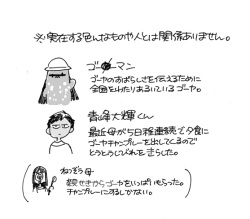 ※実在する色んなものや人とは関係ありません。
ゴーヤーマン
ゴーヤのすばらしさを伝えるために
全国をわたりあるいているゴーヤ。
青峰大輝くん
最近母が5日程連続で夕食に
ゴーヤチャンプルーを出してくるので
とうとうしびれをきらした。
母
親せきからゴーヤをいっぱいもらった。
チャンプルーにするしかない。